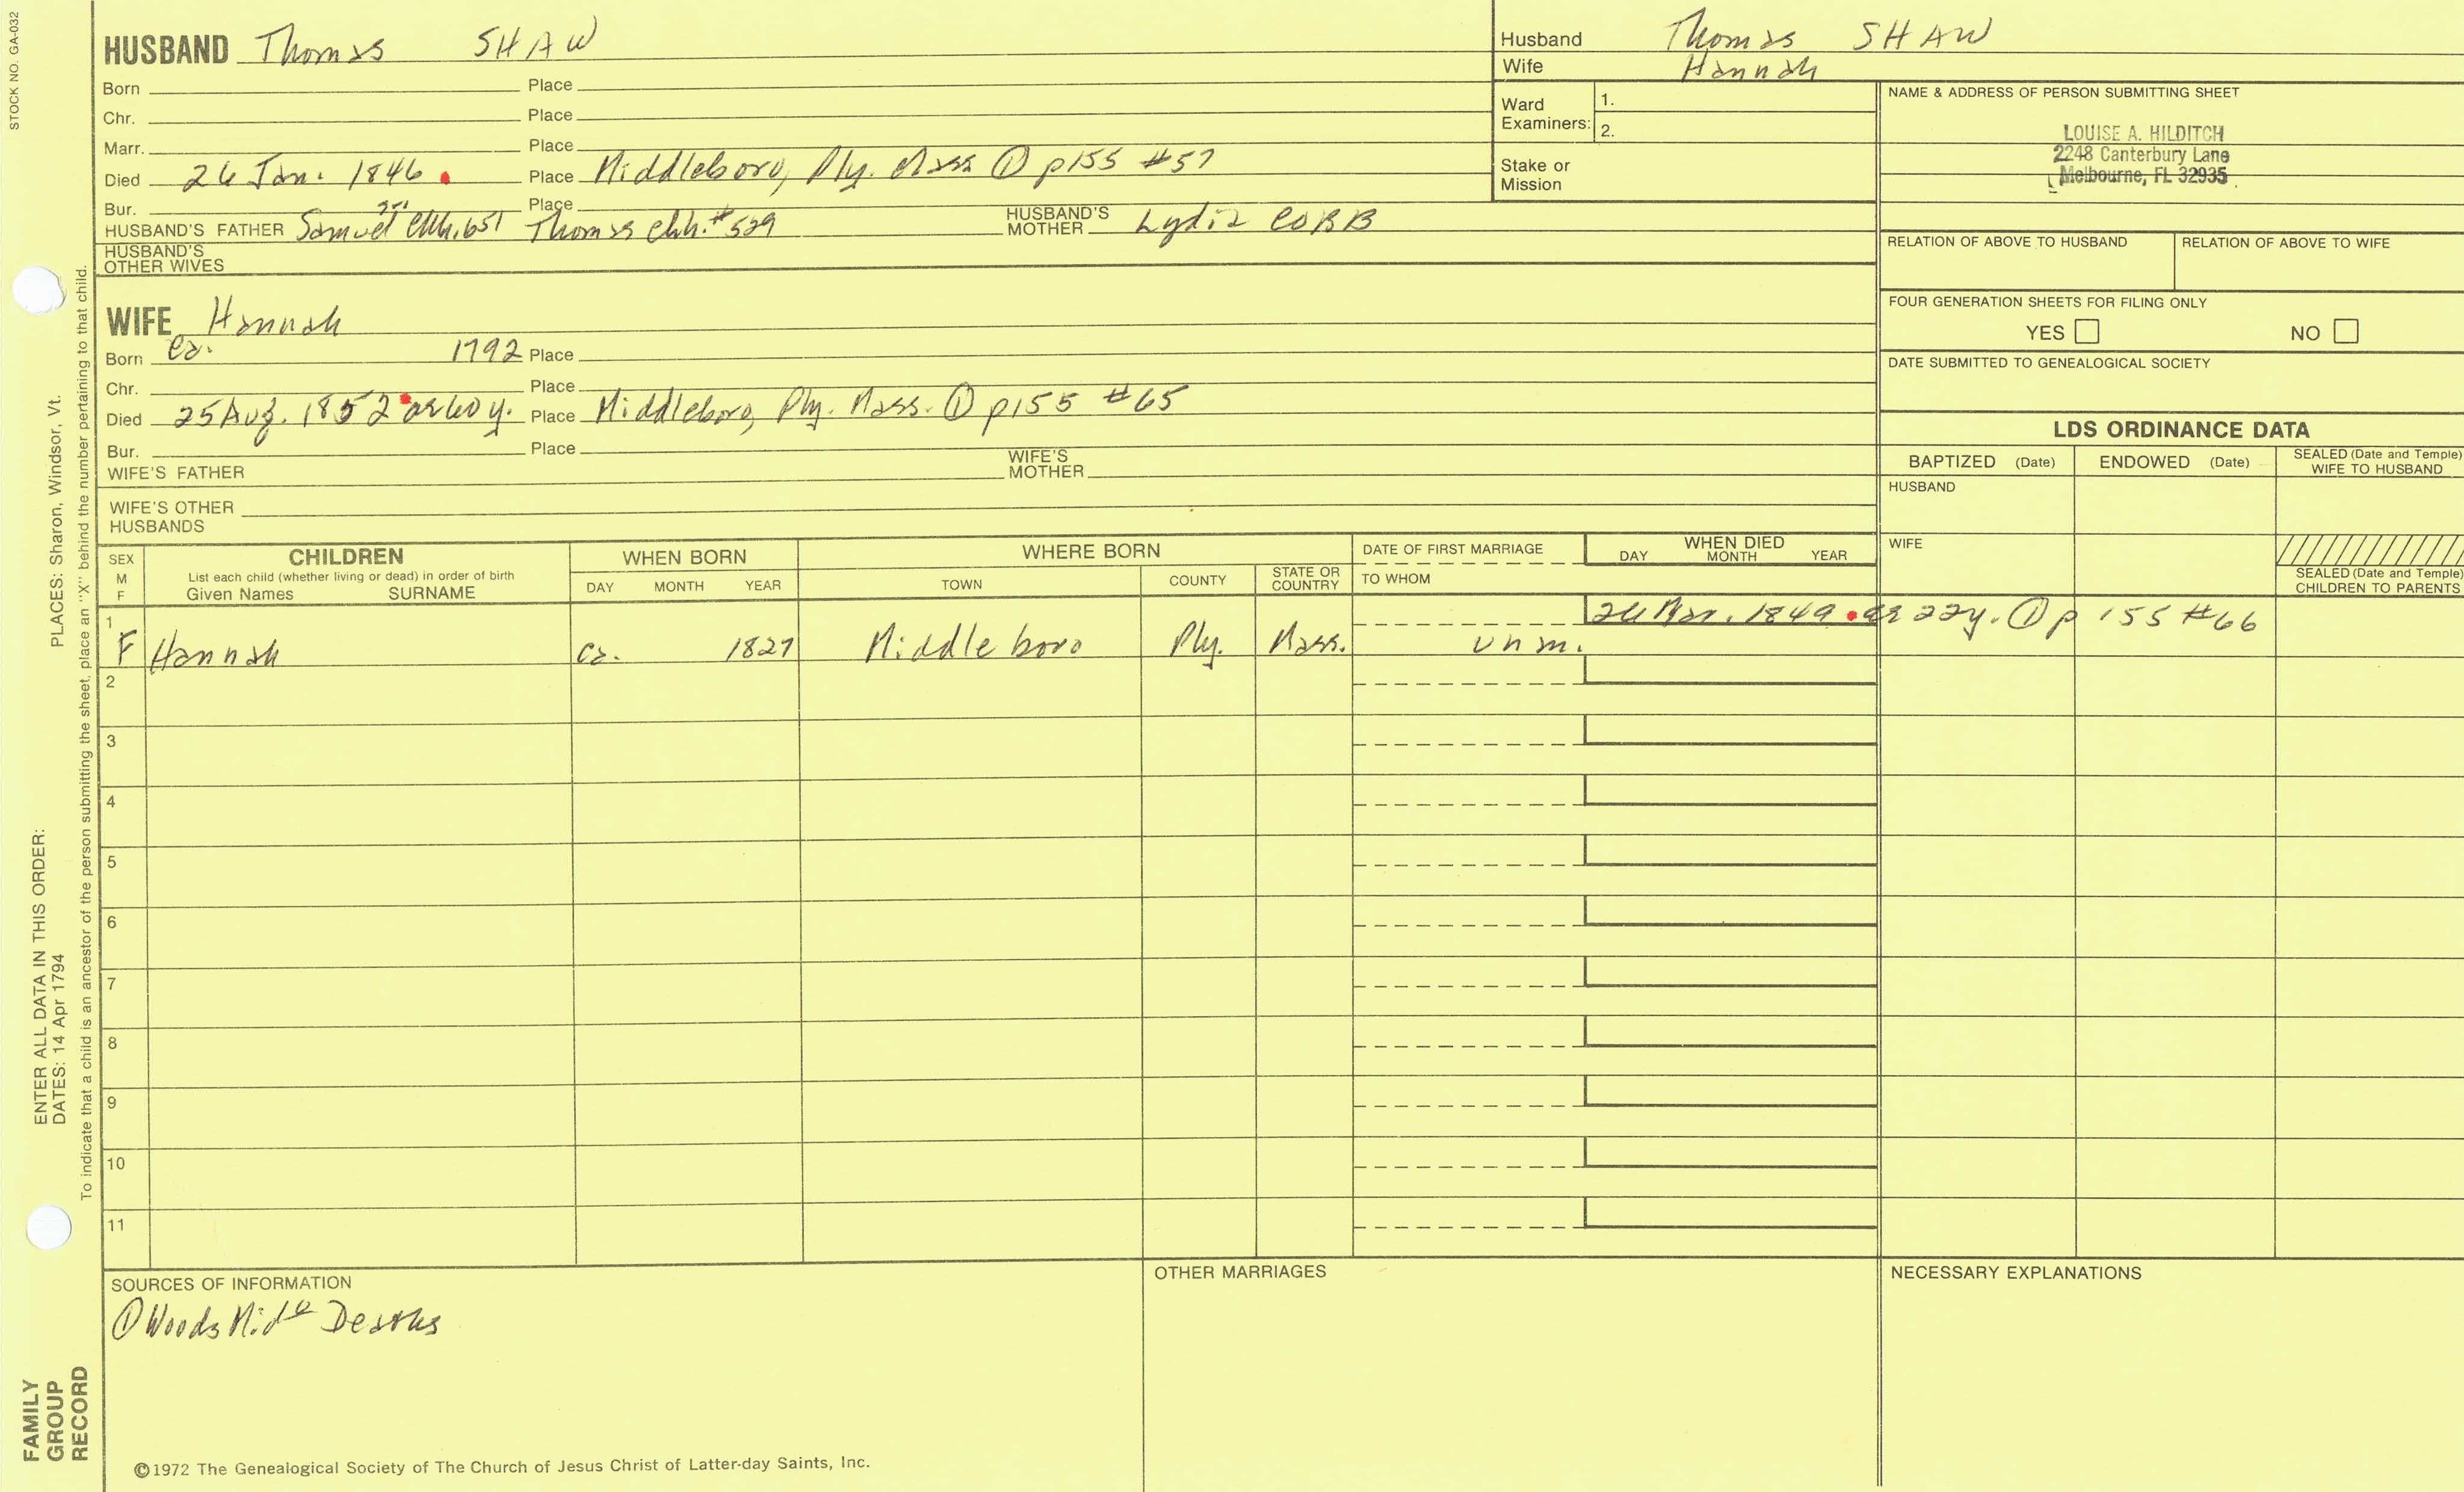 STOCK NO. GA-032
HUSBAND Thomas SHAW
Born Place
Chr. Place
Marr. Place
Died 26 Jan. 1846. Place Middleboro, Ply. Mass ① p155 #57
Bur. Place
HUSBAND'S FATHER Samuel Thomas HUSBAND'S MOTHER Lydia COBB
HUSBAND'S OTHER WIVES
Husband Thomas SHAW
Wife Hannah
Ward Examiners: 1.
2.
Stake or Mission
NAME & ADDRESS OF PERSON SUBMITTING SHEET
LOUISE A. HILDITCH
2248 Canterbury Lane
Melbourne, FL 32935
RELATION OF ABOVE TO HUSBAND RELATION OF ABOVE TO WIFE
FOUR GENERATION SHEETS FOR FILING ONLY
YES NO
DATE SUBMITTED TO GENEALOGICAL SOCIETY
WIFE Hannah
Born ca. 1792 Place
Chr. Place
Died 25 Aug. 1852 ae 60 y. Place Middleboro, Ply. Mass. ① p155 #65
Bur. Place
WIFE'S FATHER WIFE'S MOTHER
WIFE'S OTHER HUSBANDS
LDS ORDINANCE DATA
BAPTIZED (Date) ENDOWED (Date) SEALED (Date and Temple) WIFE TO HUSBAND
HUSBAND
WIFE
SEALED (Date and Temple) CHILDREN TO PARENTS
SEX M F
CHILDREN
List each child (whether living or dead) in order of birth
Given Names SURNAME
WHEN BORN
DAY MONTH YEAR
WHERE BORN
TOWN COUNTY STATE OR COUNTRY
DATE OF FIRST MARRIAGE
TO WHOM
WHEN DIED
DAY MONTH YEAR
1 26 Mar. 1849. ae 22y. ① p 155 #66
F Hannah ca. 1827 Middleboro Ply. Mass. unm.
2
3
4
5
6
7
8
9
10
11
SOURCES OF INFORMATION
① Woods Mid Deaths
OTHER MARRIAGES
NECESSARY EXPLANATIONS
©1972 The Genealogical Society of The Church of Jesus Christ of Latter-day Saints, Inc.
ENTER ALL DATA IN THIS ORDER:
DATES: 14 Apr 1794 PLACES: Sharon, Windsor, Vt.
To indicate that a child is an ancestor of the person submitting the sheet, place an "X" behind the number pertaining to that child.
FAMILY
GROUP
RECORD